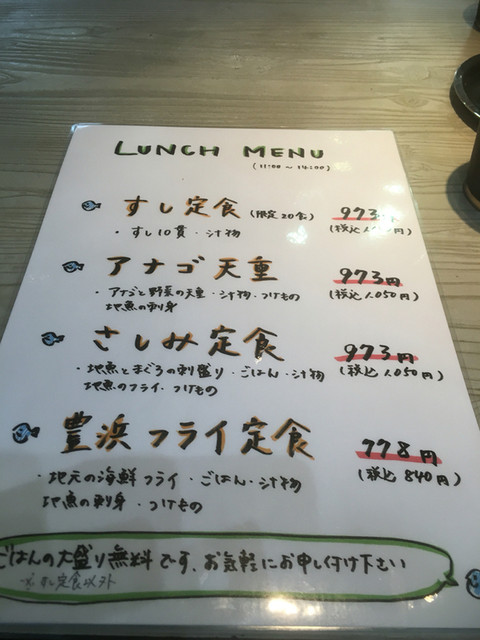 LUNCH MENU
(11:00 ~ 14:00)
すし定食 (限定20食) 973
・すし10貫・汁物 (税込1,050円)
アナゴ天重 973円
・アナゴと野菜の天重・汁物・つけもの (税込1,050円)
地魚の刺身
さしみ定食 973円
・地魚とまぐろの刺盛り・ごはん・汁物 (税込1,050円)
地魚のフライ・つけもの
豊浜フライ定食 778円
・地元の海鮮フライ・ごはん・汁物 (税込840円)
地魚の刺身・つけもの
ごはんの大盛り無料です、お気軽にお申し付け下さい
※すし定食以外